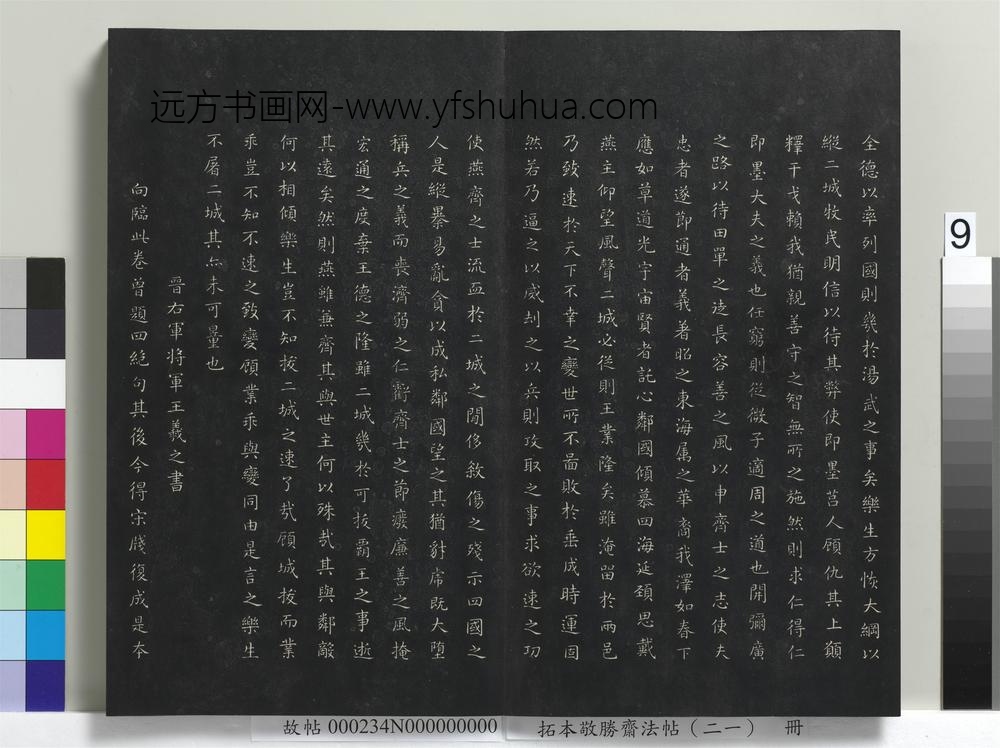 远方书画网-www.yfshuhua.com
全德以率列國則幾於湯武之事矣樂生方恢大綱以
縱二城牧民明信以待其弊使即墨莒人顧仇其上願
釋干戈賴我猶親善守之智無所之施然則求仁得仁
即墨大夫之義也任窮則從微子適周之道也開彌廣
之路以待田單之徒長容善之風以申齊士之志使夫
忠者遂節通者義著昭之東海屬之華裔我澤如春下
應如草道光宇宙賢者託心鄰國傾慕四海延頸思戴
燕主仰望風聲二城必從則王業隆矣雖淹留於兩邑
乃致速於天下不幸之變世所不圖敗於垂成時運固
然若乃逼之以威刦之以兵則攻取之事求欲速之功
使燕齊之士流血於二城之間侈敘傷之殘示四國之
人是縱暴易亂貪以成私鄰國望之其猶豺虎既大墮
稱兵之義而喪濟弱之仁虧齊士之節癈廉善之風掩
宏通之度棄王德之隆雖二城幾於可拔霸王之事逝
其遠矣然則燕雖兼齊其與世主何以殊哉其與鄰敵
何以相傾樂生豈不知拔二城之速了哉顧城拔而業
乖豈不知不速之致變顧業乖與變同由是言之樂生
不屠二城其亦未可量也
晉右軍將軍王羲之書
向臨此卷曾題四絶句其後今得宋牋復成是本
9
故帖 000234N000000000 拓本敬勝齋法帖(二一) 冊